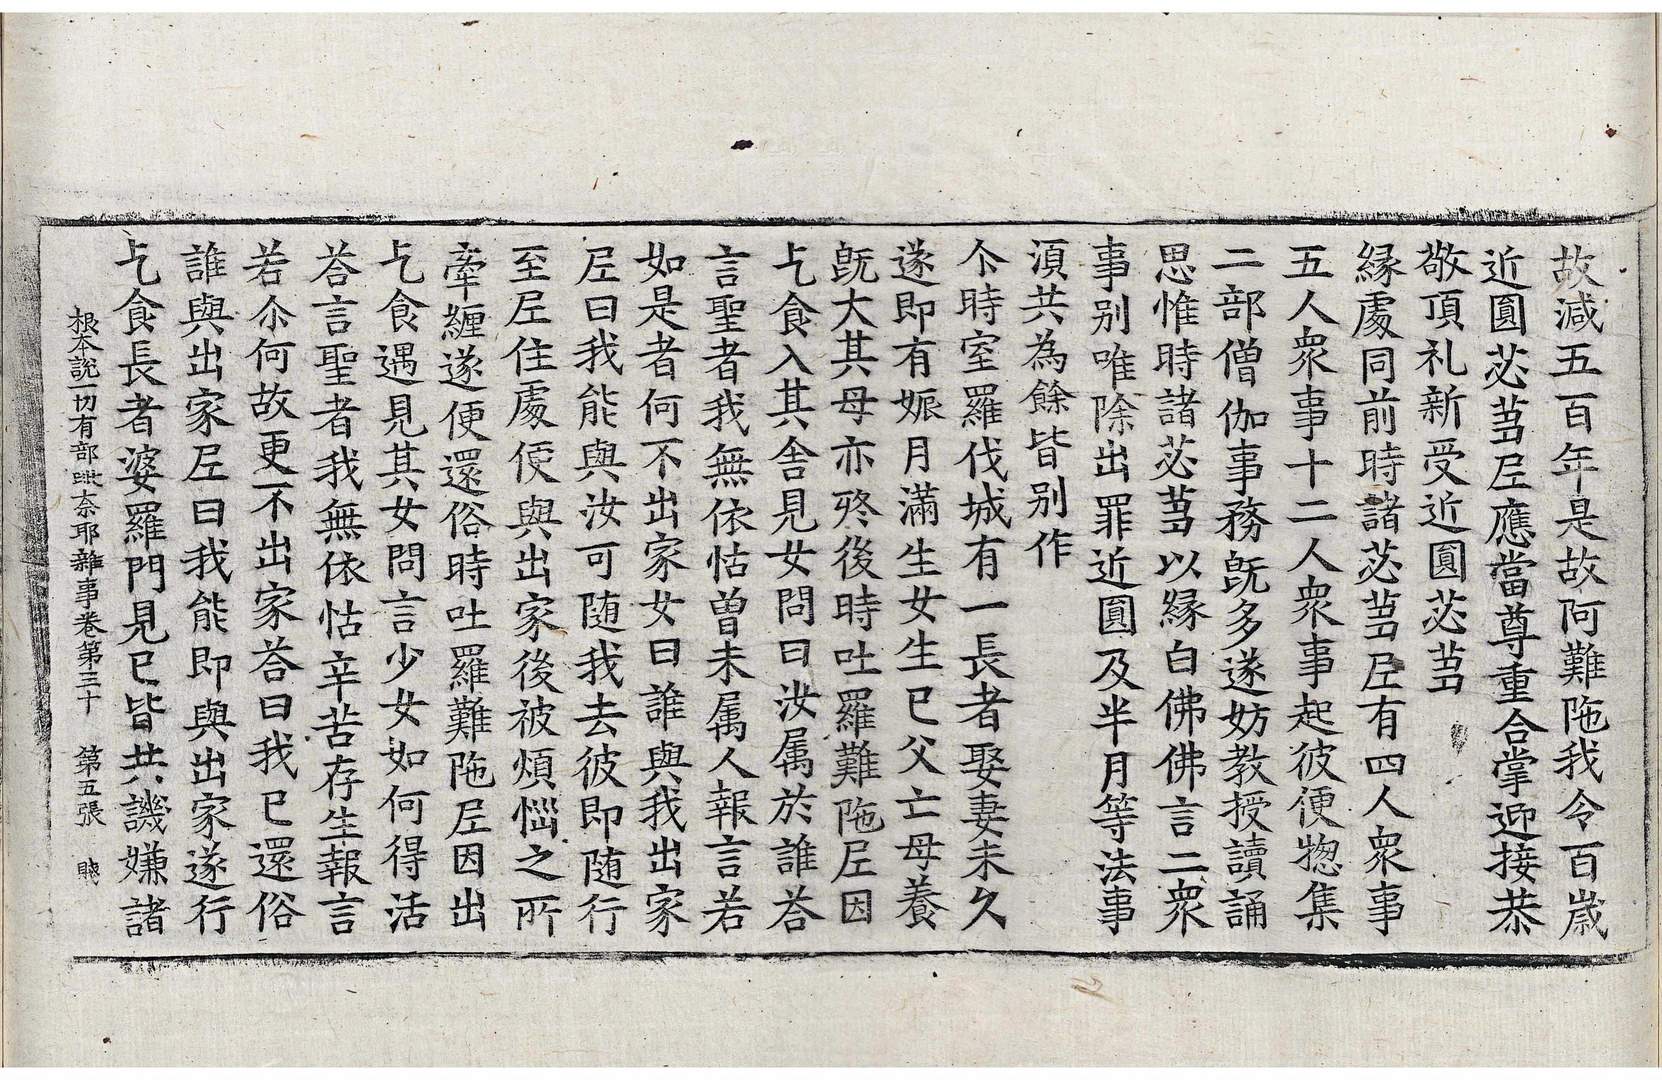 故減五百年是故阿難陁我令百歳
近圓苾蒭尼應當尊重合掌迎接恭
敬頂礼新受近圓苾蒭
縁處同前時諸苾蒭尼有四人衆事
五人衆事十二人衆事起彼便揔集
二部僧伽事務旣多遂妨教授讀誦
思惟時諸苾蒭以縁白佛佛言二衆
事別唯除出罪近圓及半月等法事
湏共為餘皆別作
尒時室羅伐城有一長者娶妻未久
遂即有娠月滿生女生已父亡母養
旣大其母亦終後時吐羅難陁尼因
乞食入其舎見女問曰汝属於誰荅
言聖者我無依怙曽未属人報言若
如是者何不出家女曰誰與我出家
尼曰我能與汝可随我去彼即随行
至尼住處便與出家後被煩惱之所
牽纏遂便還俗時吐羅難陁尼因出
乞食遇見其女問言少女如何得活
荅言聖者我無依怙辛苦存生報言
若尒何故更不出家荅曰我已還俗
誰與出家尼曰我能即與出家遂行
乞食長者婆羅門見已皆共譏嫌諸
根本說一切有部毗奈耶雜事卷第三十 第五張 職